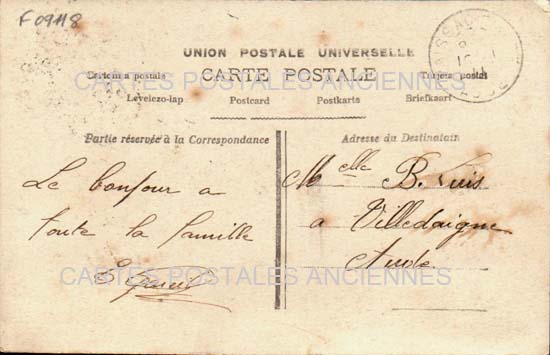 F 09418
UNION POSTALE UNIVERSELLE
CARTE POSTALE
Cartoin a postale
Tarjeta postal
Levelezo-lap
Postcard
Postkarte
Briefkaart
CARTES POSTALES ANCIENNES
Partie réservée à la Correspondance
Adresse du Destinatain
Le bonjour a
toute la famille
Melle B. Luis
a Villedaigne
Aude
CARTES POSTALES ANCIENNES